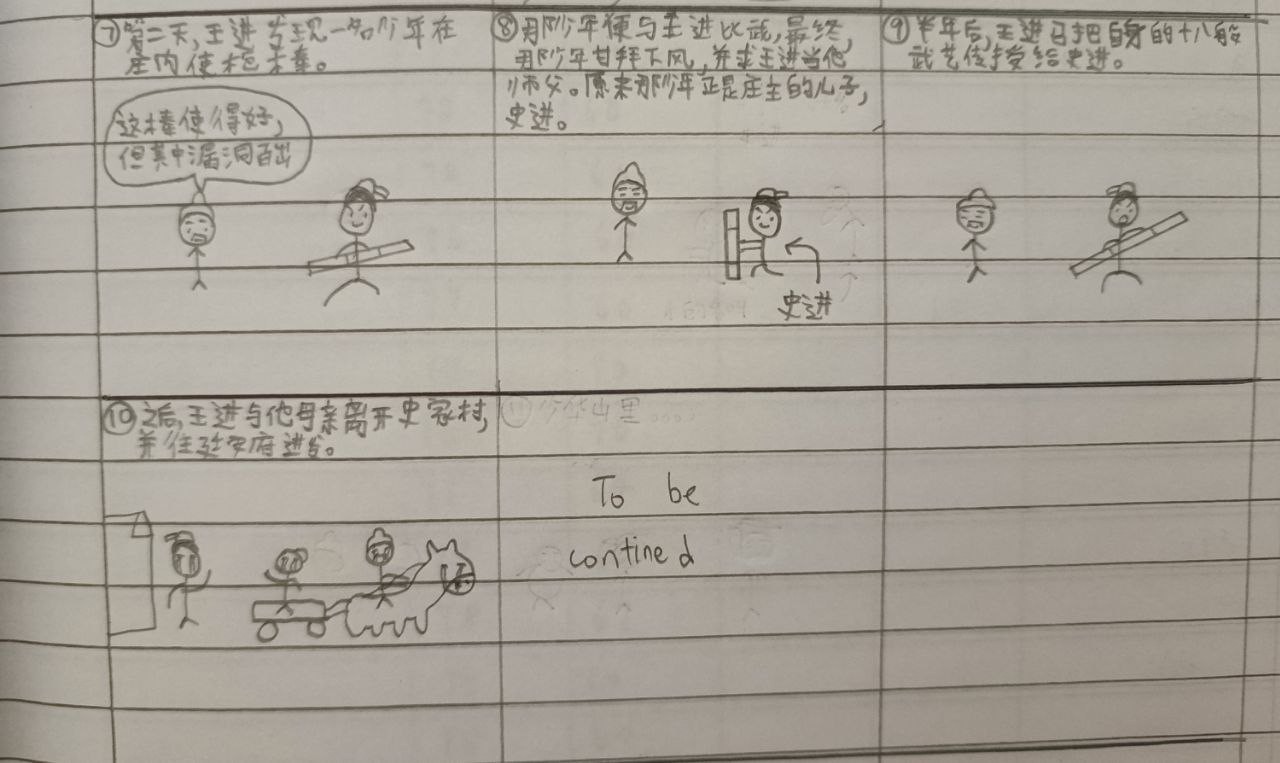 ⑦第二天,王进发现一名少年在
屋内使枪棒。
这棒使得好,
但其中漏洞百出
⑧那少年便与王进比武,最终,
那少年甘拜下风,并求王进当他
师父。原来那少年正是庄主的儿子,
史进。
史进
⑨半年后,王进已把自身的十八般
武艺传授给史进。
⑩之后,王进与他母亲离开史家村,
并往延安府进发。
⑪少华山里....
To be
contined